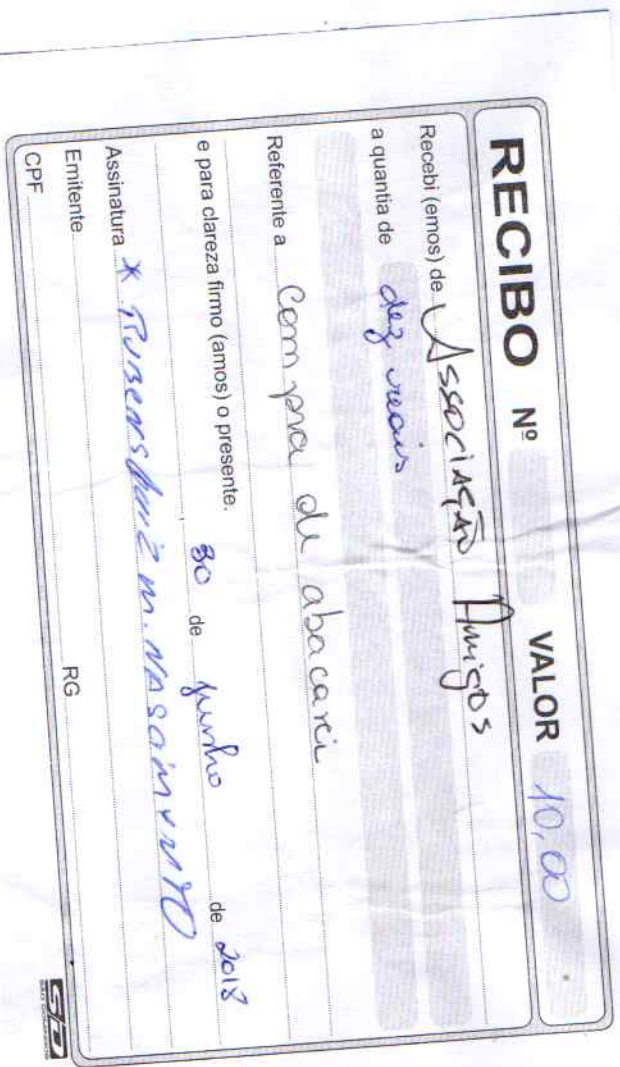 RECIBO Nº VALOR 10,00
Recebi (emos) de Associação Amigos
a quantia de dez reais
Referente a Compra de abacaxi
e para clareza firmo (amos) o presente.
30 de junho de 2018
Assinatura * Rubens Luiz m. Nascimento
Emitente
CPF RG